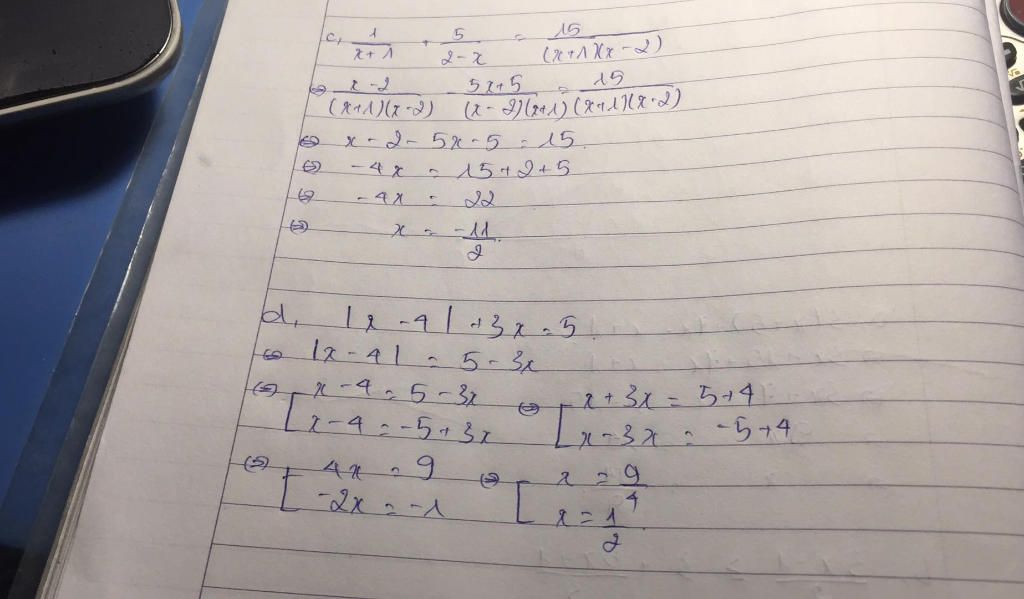 c, 1/(x+1) + 5/(2-x) = 15/((x+1)(x-2))
⇔ (x-2)/((x+1)(x-2)) - (5x+5)/((x-2)(x+1)) = 15/((x+1)(x-2))
⇔ x-2-5x-5 = 15.
⇔ -4x = 15+2+5
⇔ -4x = 22
⇔ x = -11/2.
d, |x-4|+3x=5.
⇔ |x-4| = 5-3x
⇔ [ x-4=5-3x ⇔ [ x+3x=5+4
x-4=-5+3x x-3x=-5+4
⇔ [ 4x=9 ⇔ [ x=9/4
-2x=-1 x=1/2.